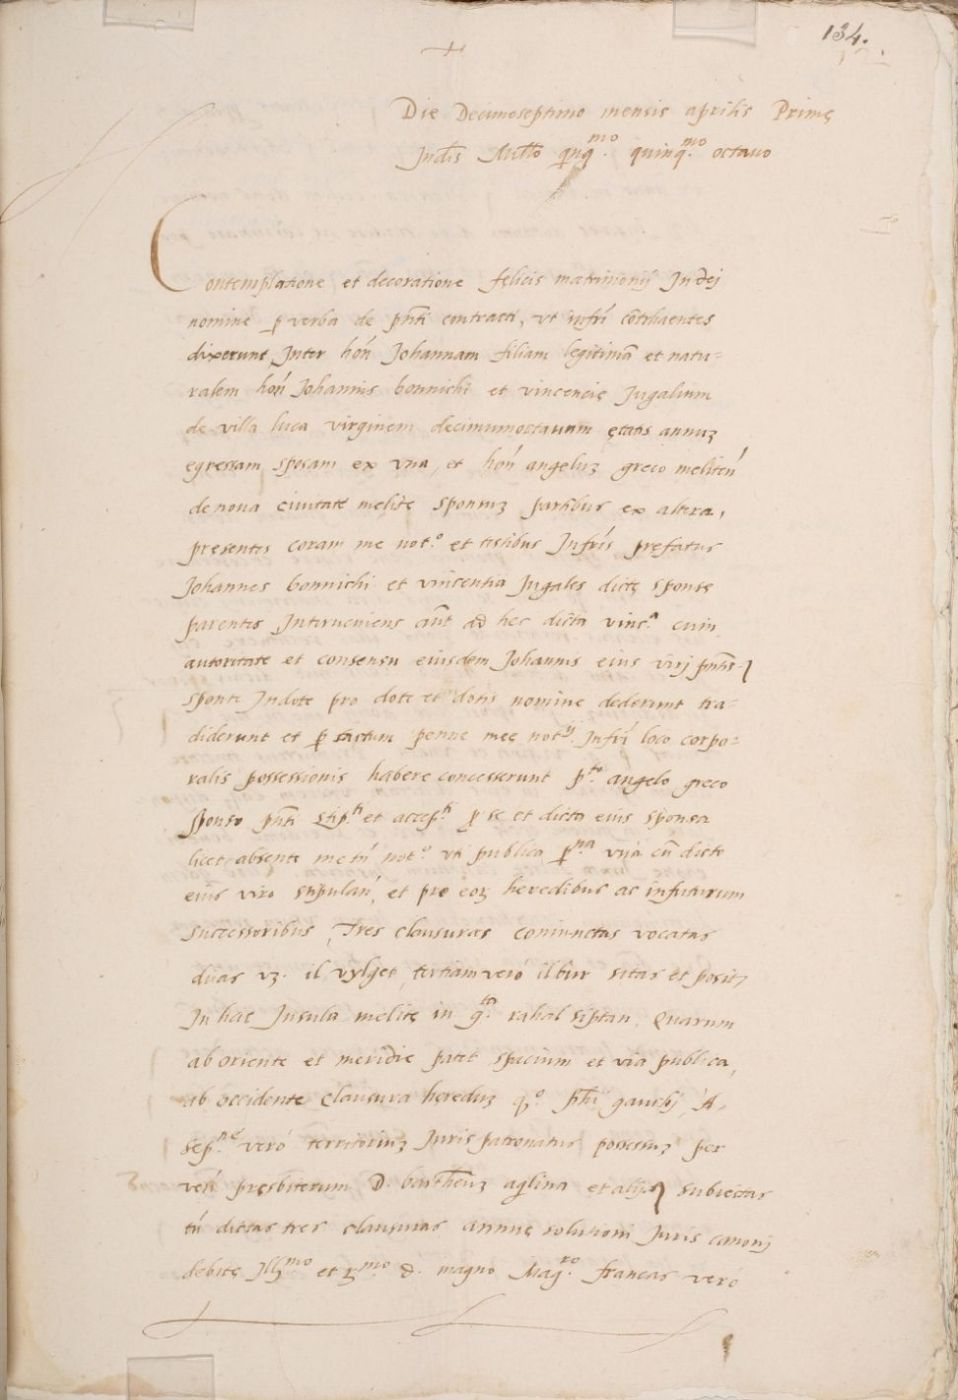 134.
+
Die Decimoseptimo mensis aprilis Primę
Indis Millo qnqmo. quinqmo. octauo
Contemplatione et decoratione felicis matrimonij In dej
nomine p verba de pnti contracti, vt infri contrahentes
dixerunt Inter hon Johannam filiam legitimã et natu=
ralem hon Johannis bonnichi et vincencię Jugalium
de villa luca virginem decimumoctauum ętatis annuʒ
egressam sposam ex vna, et hon angeluʒ greco meliten
de noua ciuitate melite sponsuʒ partibus ex altera,
presentes coram me not.o et testibus Infris pręfatus
Johannes bonnichi et vincentia Jugales dictę sponsę
parentes Interueniens aut ad hec dicta vinc.a cum
autoritate et consensu eiusdem Johannis eius virj pntis
sponte Indote pro dote et dotis nomine dederunt tra=
diderunt et p tactum penne mee notrj. Infri loco corpo=
ralis possessionis habere concesserunt p.to angelo greco
sponso pnti stip.ti et accep.ti p se et dicta eius sponsa
licet absente me tn not.o vti publica p.na vna cũ dicto
eius viro stipulan, et pro eoʒ heredibus ac infuturum
successoribus, Tres clausuras coniunctas vocatas
duas vʒ. il vylget, tertiam vero il bir sitas et posit
In hac Insula melitę in q.ta rahal siptan, Quarum
ab oriente et meridie patet spacium et via publica,
ab occidente clausura hereduʒ q.o phi gauchj, A
sep.ne vero territoriuʒ Juris patronatus possessuʒ per
ven pręsbiterum D. bartheuʒ aqlina et alijs subiectas
tn dictas tres clausuras annuę solutioni Juris canonj
debitę Illmo. et Rmo. d. magno Mag.ro francas vero